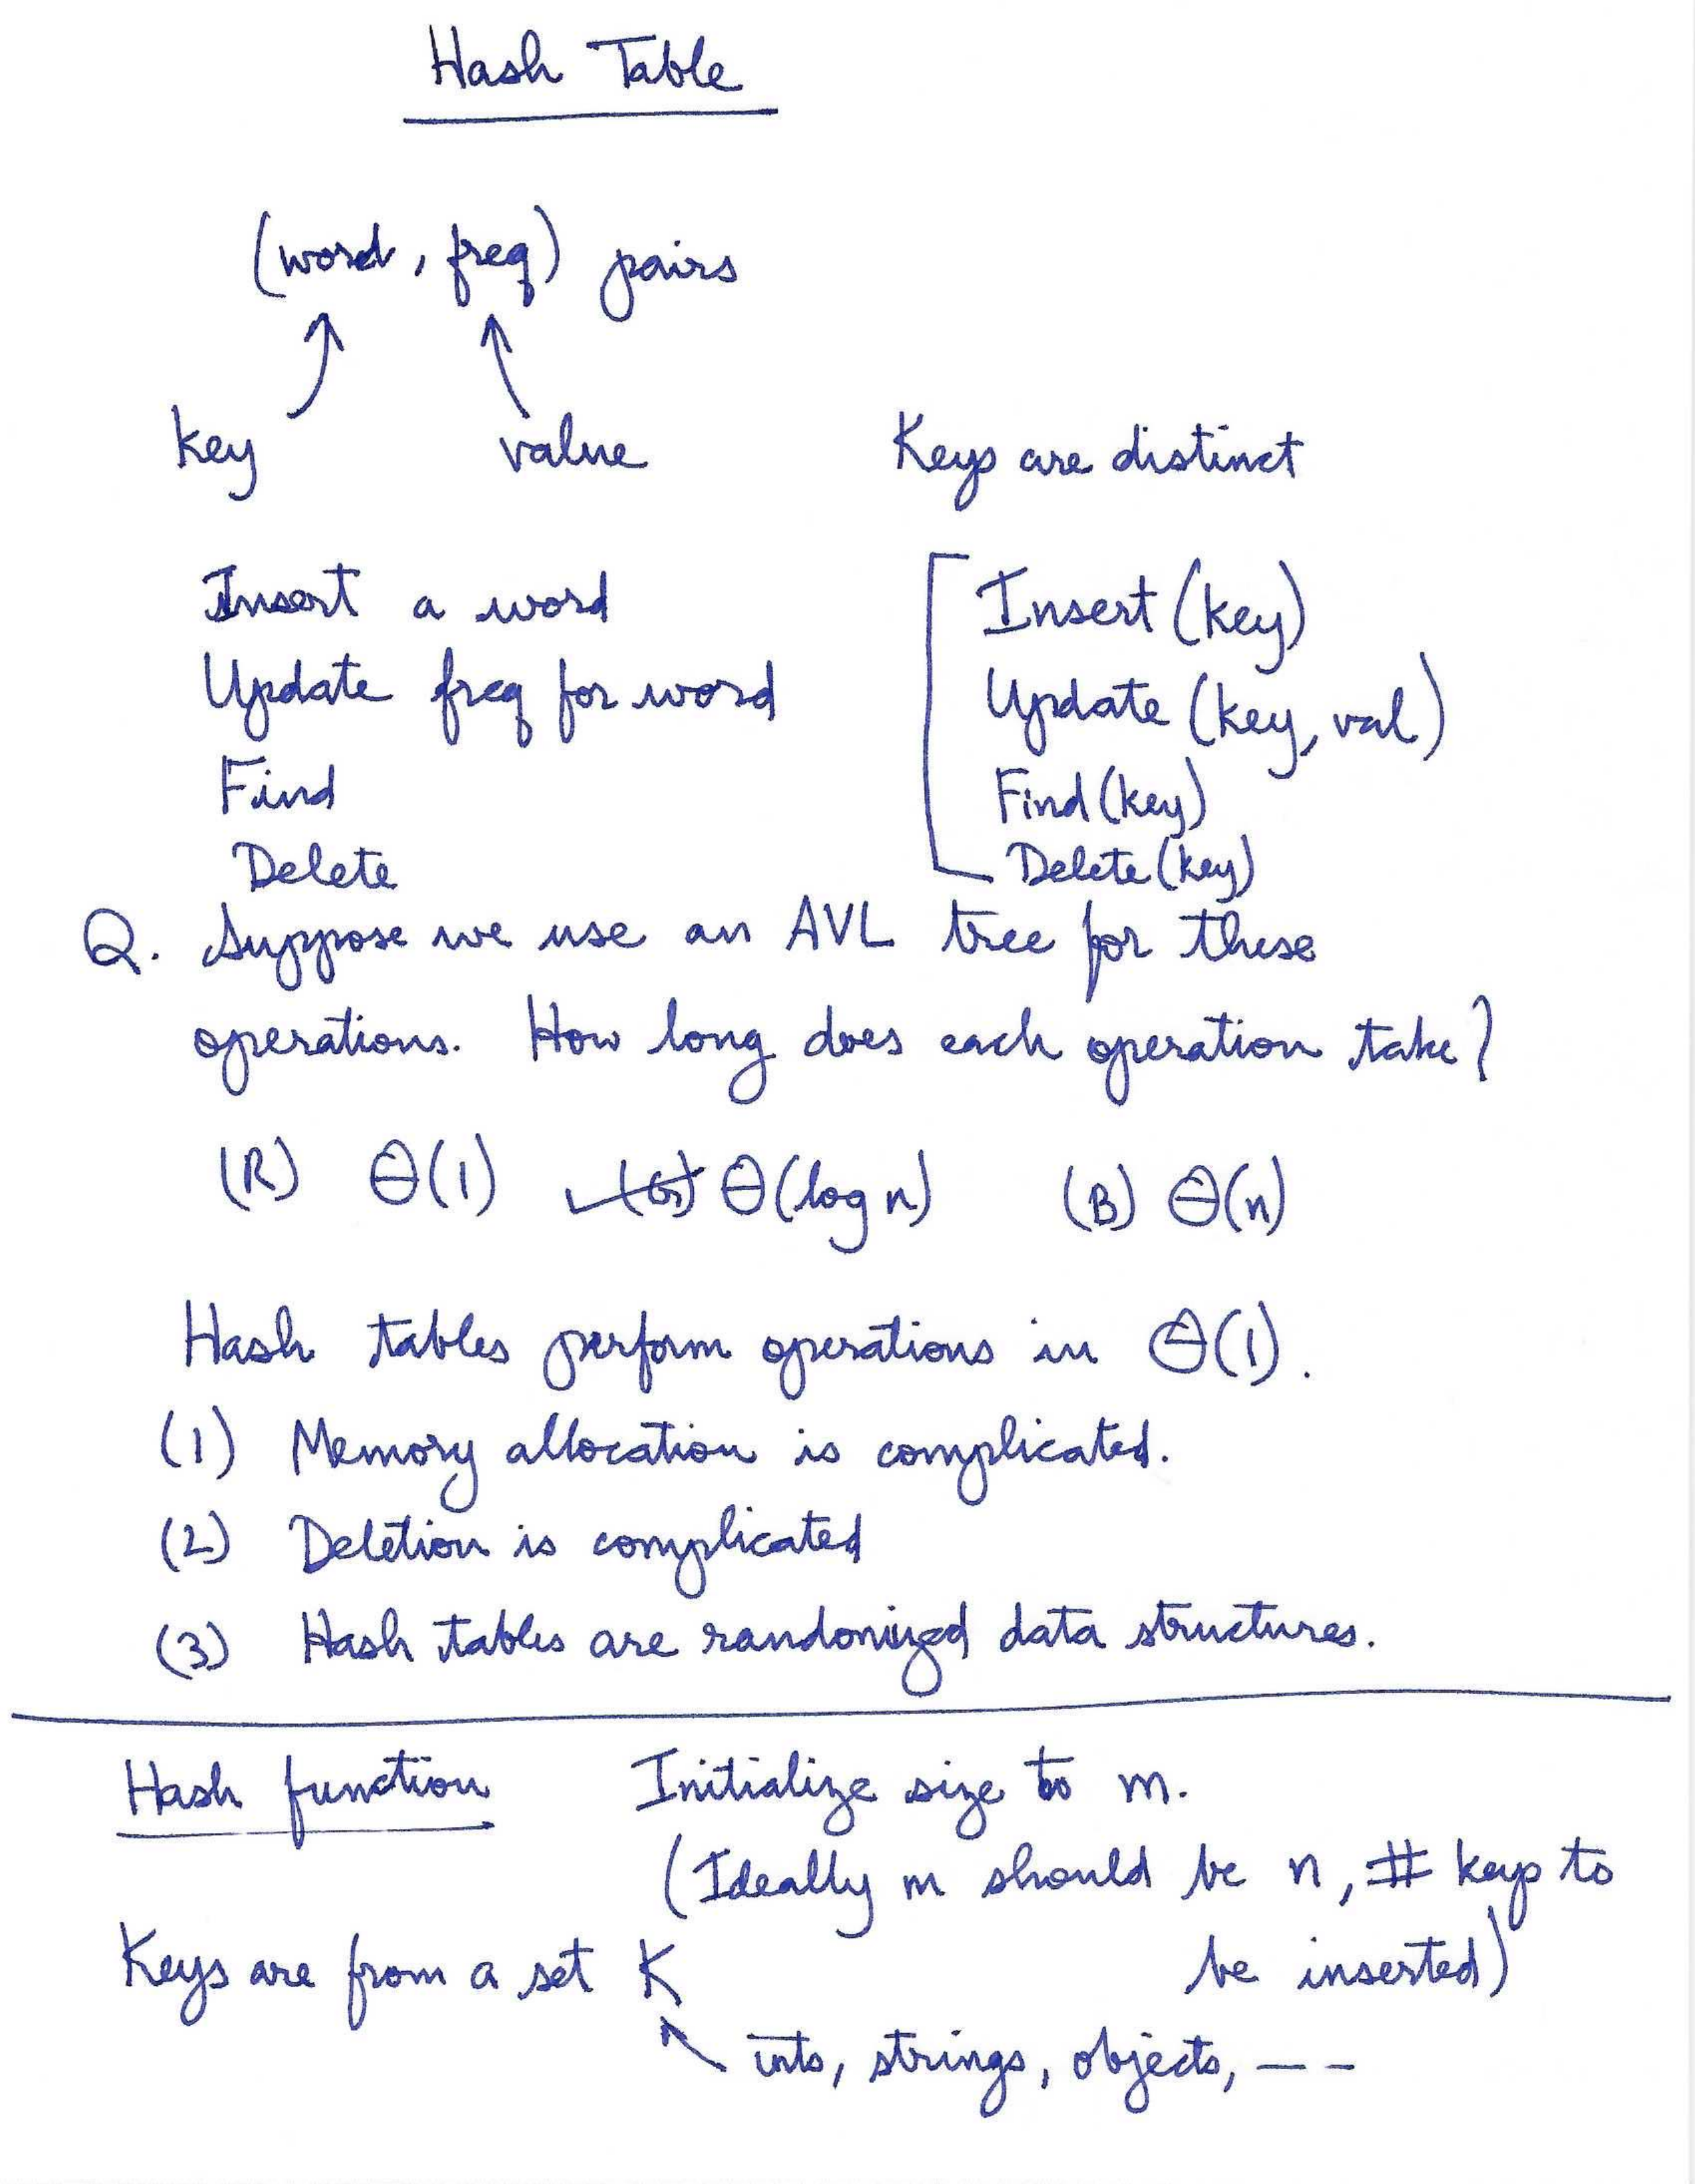 Hash Table
(word, freq) pairs
key value Keys are distinct
Insert a word Insert(key)
Update freq for word Update(key, val)
Find Find(key)
Delete Delete(key)
Q. Suppose we use an AVL tree for these
operations. How long does each operation take?
(R) Θ(1) ✓(G) Θ(log n) (B) Θ(n)
Hash tables perform operations in Θ(1).
(1) Memory allocation is complicated.
(2) Deletion is complicated
(3) Hash tables are randomized data structures.
Hash function Initialize size to m.
(Ideally m should be n, # keys to
Keys are from a set K be inserted)
ints, strings, objects, — –